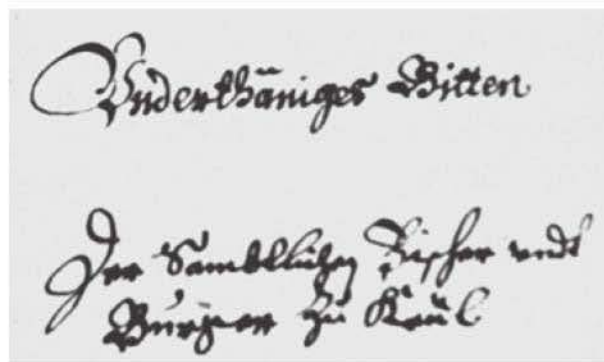 Underthäniges Bitten
Der Sambtlichen Fischer undt
Burger zu Kaul